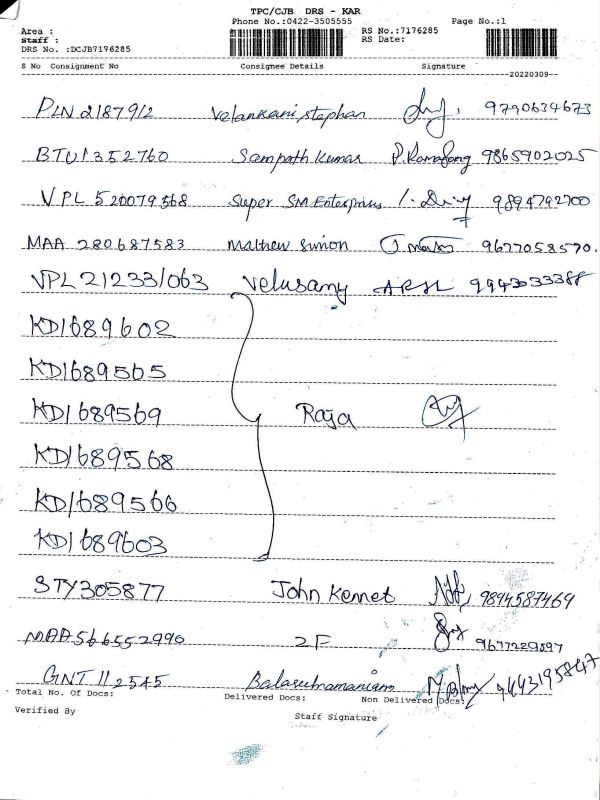 TPC/CJB DRS - KAR
Phone No.:0422-3505555 Page No.:1
Area : RS No.:7176285
Staff : RS Date:
DRS No. :DCJB7176285
S No Consignment No Consignee Details Signature
20220309
PLN 2187912 Velankani stephan 9790634673
BTU1352760 Sampath Kumar 9865902025
VPL 520079568 Super SM Enterprises 9894792700
MAA 280687583 Mathew Simon 9677058570.
VPL 212331063 Velusamy 9943033388
KD1689602
KD1689565
KD1689569 Raja
KD1689568
KD1689566
KD1689603
STY305877 John Kennet 9894587469
MAA566552990 2F 9677229597
GNT 112545 Balasubramaniam 9443195847
Total No. Of Docs: Delivered Docs: Non Delivered Docs:
Verified By Staff Signature